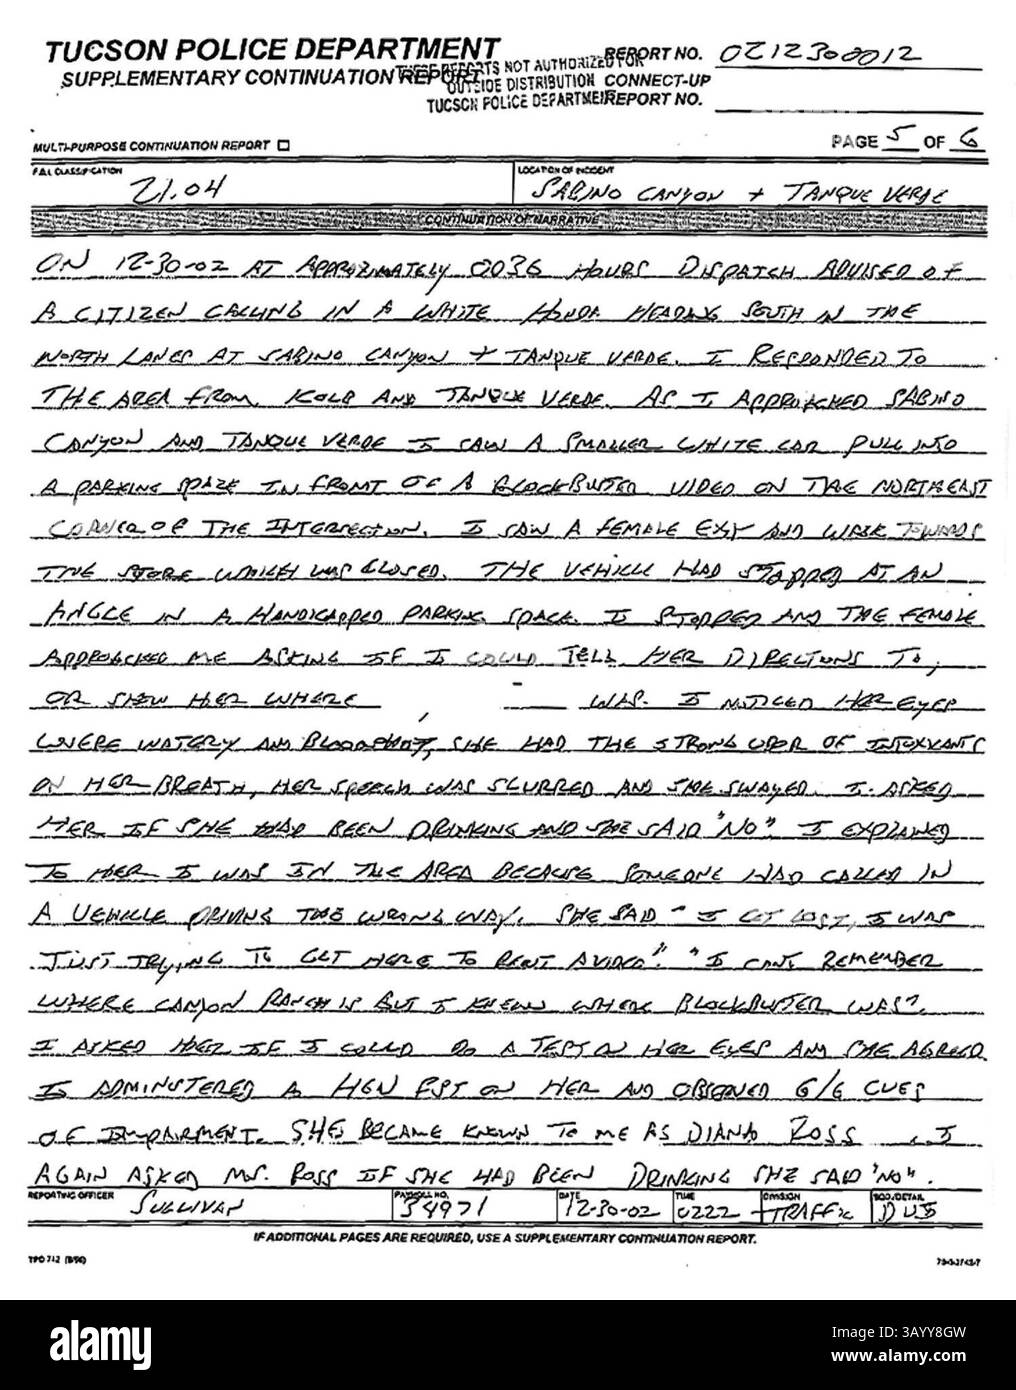 TUCSON POLICE DEPARTMENT
SUPPLEMENTARY CONTINUATION REPORT
THESE REPORTS NOT AUTHORIZED FOR
OUTSIDE DISTRIBUTION
TUCSON POLICE DEPARTMENT
REPORT NO. 0212300012
CONNECT-UP
REPORT NO.
MULTI-PURPOSE CONTINUATION REPORT
PAGE 5 OF 6
CLASSIFICATION
21.04
LOCATION OF INCIDENT
SABINO CANYON + TANQUE VERDE
CONTINUATION OF NARRATIVE
ON 12-30-02 AT APPROXIMATELY 0036 HOURS DISPATCH ADVISED OF
A CITIZEN CALLING IN A WHITE HONDA HEADING SOUTH IN THE
NORTH LANES AT SABINO CANYON + TANQUE VERDE. I RESPONDED TO
THE AREA FROM KOLB AND TANQUE VERDE. AS I APPROACHED SABINO
CANYON AND TANQUE VERDE I SAW A SMALLER WHITE CAR PULL INTO
A PARKING SPACE IN FRONT OF A BLOCKBUSTER VIDEO ON THE NORTHEAST
CORNER OF THE INTERSECTION. I SAW A FEMALE EXIT AND WALK TOWARDS
THE STORE WHICH WAS CLOSED. THE VEHICLE HAD STOPPED AT AN
ANGLE IN A HANDICAPPED PARKING SPACE. I STOPPED AND THE FEMALE
APPROACHED ME ASKING IF I COULD TELL HER DIRECTIONS TO,
OR SHOW HER WHERE WAS. I NOTICED HER EYES
WERE WATERY AND BLOODSHOT, SHE HAD THE STRONG ODOR OF INTOXICANTS
ON HER BREATH, HER SPEECH WAS SLURRED AND SHE SWAYED. I ASKED
HER IF SHE HAD BEEN DRINKING AND SHE SAID "NO". I EXPLAINED
TO HER I WAS IN THE AREA BECAUSE SOMEONE HAD CALLED IN
A VEHICLE DRIVING THE WRONG WAY. SHE SAID "I GOT LOST, I WAS
JUST TRYING TO GET HERE TO RENT A VIDEO". "I CANT REMEMBER
WHERE CANYON RANCH IS BUT I KNEW WHERE BLOCKBUSTER WAS".
I ASKED HER IF I COULD DO A TEST ON HER EYES AND SHE AGREED.
I ADMINISTERED A HGN FST ON HER AND OBSERVED 6/6 CUES
OF IMPAIRMENT. SHE BECAME KNOWN TO ME AS DIANA ROSS. I
AGAIN ASKED MS. ROSS IF SHE HAD BEEN DRINKING SHE SAID "NO".
REPORTING OFFICER
SULLIVAN
PAYROLL NO.
34971
DATE
12-30-02
TIME
0222
DIVISION
TRAFFIC
SQD./DETAIL
DUI
IF ADDITIONAL PAGES ARE REQUIRED, USE A SUPPLEMENTARY CONTINUATION REPORT.
TPD 712
alamy
Image ID: 3AYY8GW
www.alamy.com